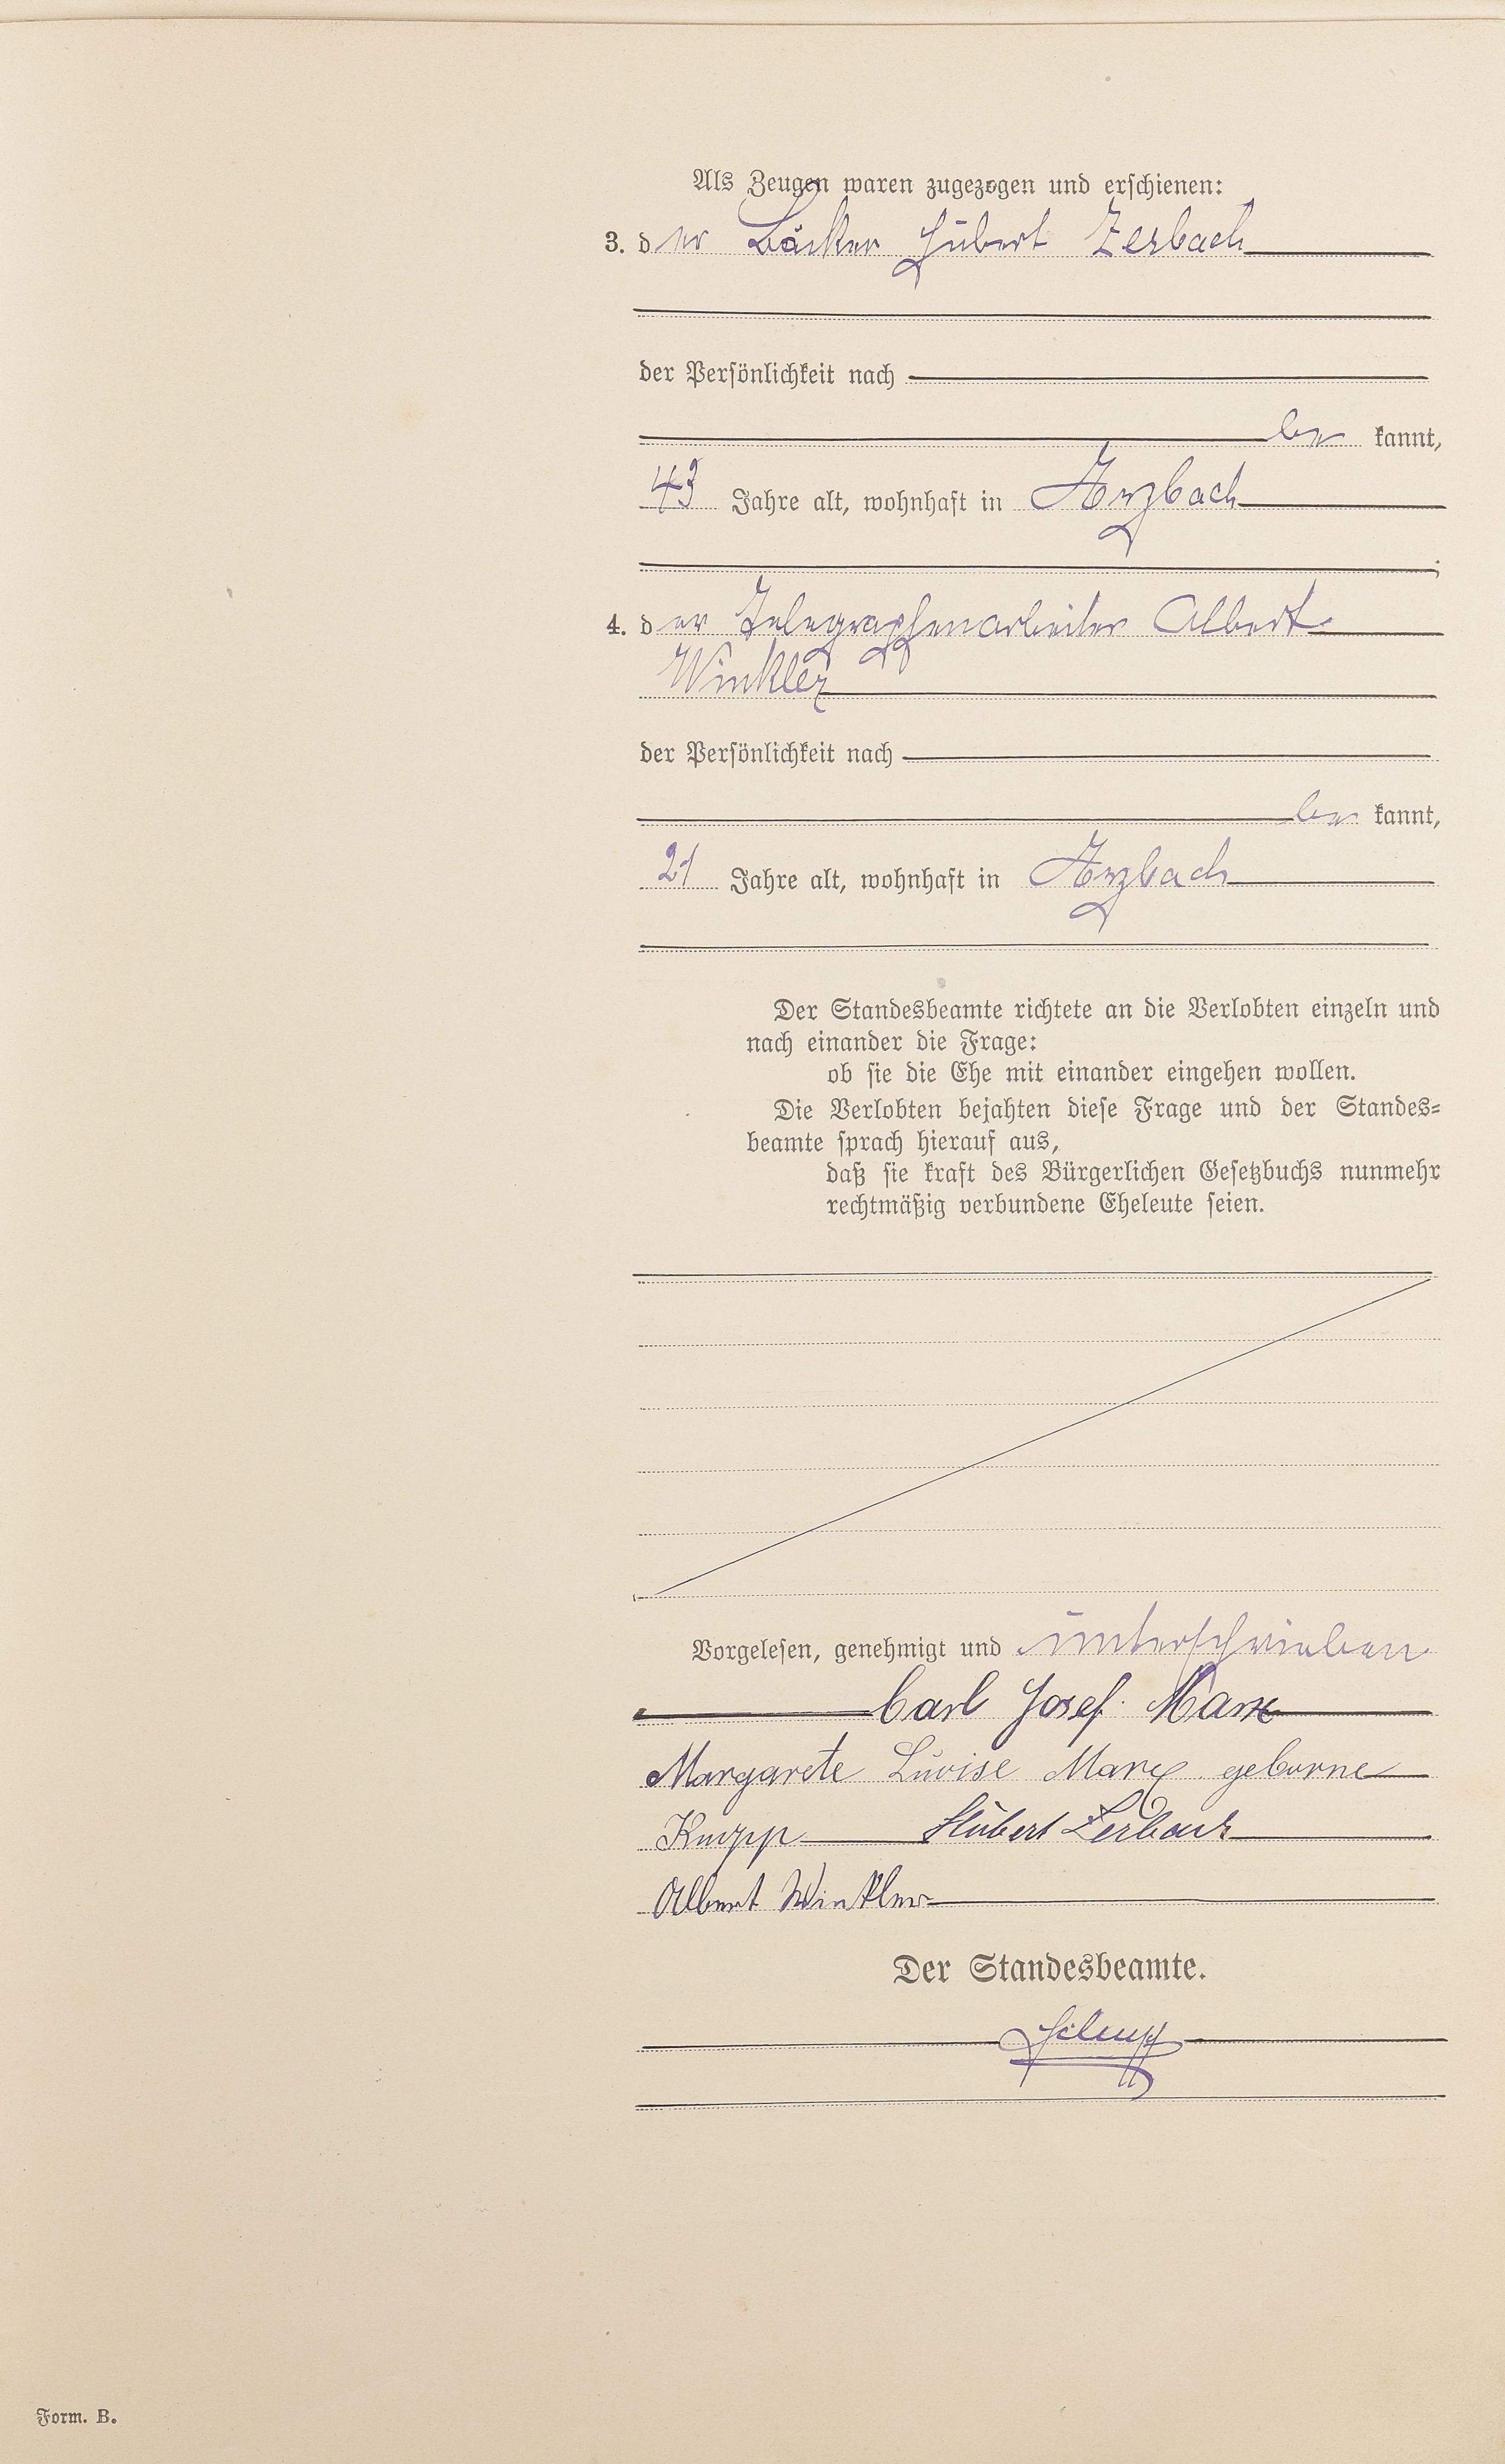 Als Zeugen waren zugezogen und erschienen:
3. der Bäcker Hubert Zerbach
der Persönlichkeit nach
be kannt,
43 Jahre alt, wohnhaft in Arzbach
;
4. der Telegraphenarbeiter Albert
Winkler
der Persönlichkeit nach
be kannt,
21 Jahre alt, wohnhaft in Arzbach
Der Standesbeamte richtete an die Verlobten einzeln und
nach einander die Frage:
ob sie die Ehe mit einander eingehen wollen.
Die Verlobten bejahten diese Frage und der Standes=
beamte sprach hierauf aus,
daß sie kraft des Bürgerlichen Gesetzbuchs nunmehr
rechtmäßig verbundene Eheleute seien.
Vorgelesen, genehmigt und unterschrieben
Carl Josef Marx
Margarete Luise Marx geborne
Knopp Hubert Zerbach
Albert Winkler
Der Standesbeamte.
Form. B.